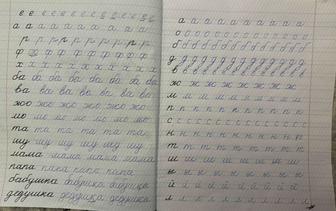 е е е е е е е е е е е е
а а а а а а а а а
р р р р р р р р р
ф ф ф ф ф ф ф ф
х х х х х х х х х
ба ба ба ба ба ба ба
ва ва ва ва ва ва ва
жо жо жо жо жо жо
мо мо мо мо мо мо
та та та та та та
щу щу щу щу щу щу
мама мама мама мама
папа папа папа папа
бабушка бабушка бабушка
дедушка дедушка дедушка
а а а а а а а а а а
о о о о о о о о о о
б б б б б б б б б б
д д д д д д д д д д
в в в в в в в в в в
ж ж ж ж ж ж ж ж ж
м м м м м м м м м м
п п п п п п п п п п
с с с с с с с с с с
н н н н н н н н н н
т т т т т т т т т
ш ш ш ш ш ш ш ш
и и и и и и и и и
й й й й й й й й й
л л л л л л л л л л